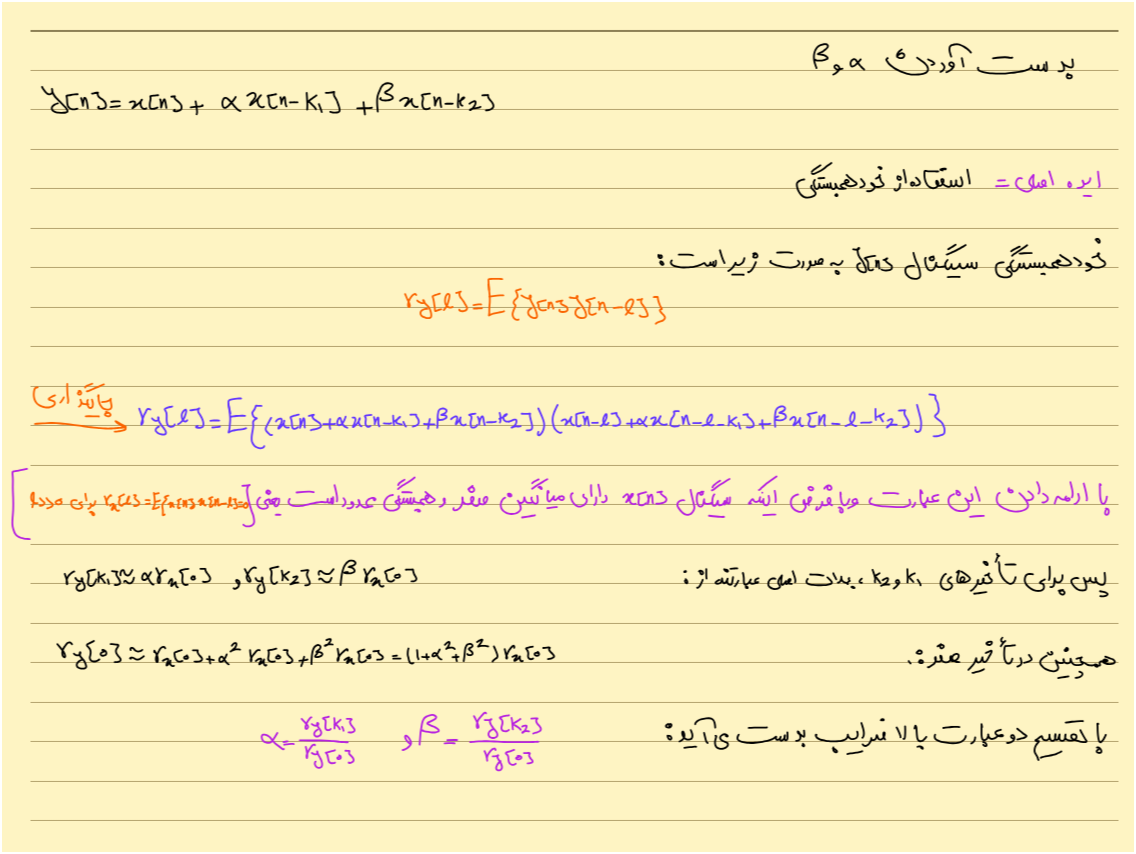 بدست آوردن α و β
y[n] = x[n] + α x[n-k₁] + β x[n-k₂]
ایده اصلی = استفاده از خودهمبستگی
خودهمبستگی سیگنال y[n] به صورت زیر است:
ry[l] = E{y[n] y[n-l]}
جایگذاری → ry[l] = E{(x[n] + αx[n-k₁] + βx[n-k₂])(x[n-l] + αx[n-l-k₁] + βx[n-l-k₂])}
با ادامه دادن این عبارت و با فرض اینکه سیگنال x[n] دارای میانگین صفر و همبستگی محدود است یعنی [rx[l] = E{x[n]x[n-l]=0 برای
پس برای تأخیرهای k₁ و k₂، اصلی عبارتند از:
ry[k₁] ≈ α rx[0] و ry[k₂] ≈ β rx[0]
همچنین در تأخیر صفر:
ry[0] ≈ rx[0] + α² rx[0] + β² rx[0] = (1+α²+β²) rx[0]
با تقسیم دو عبارت بالا ضرایب بدست می آید:
α = ry[k₁] / ry[0] و β = ry[k₂] / ry[0]